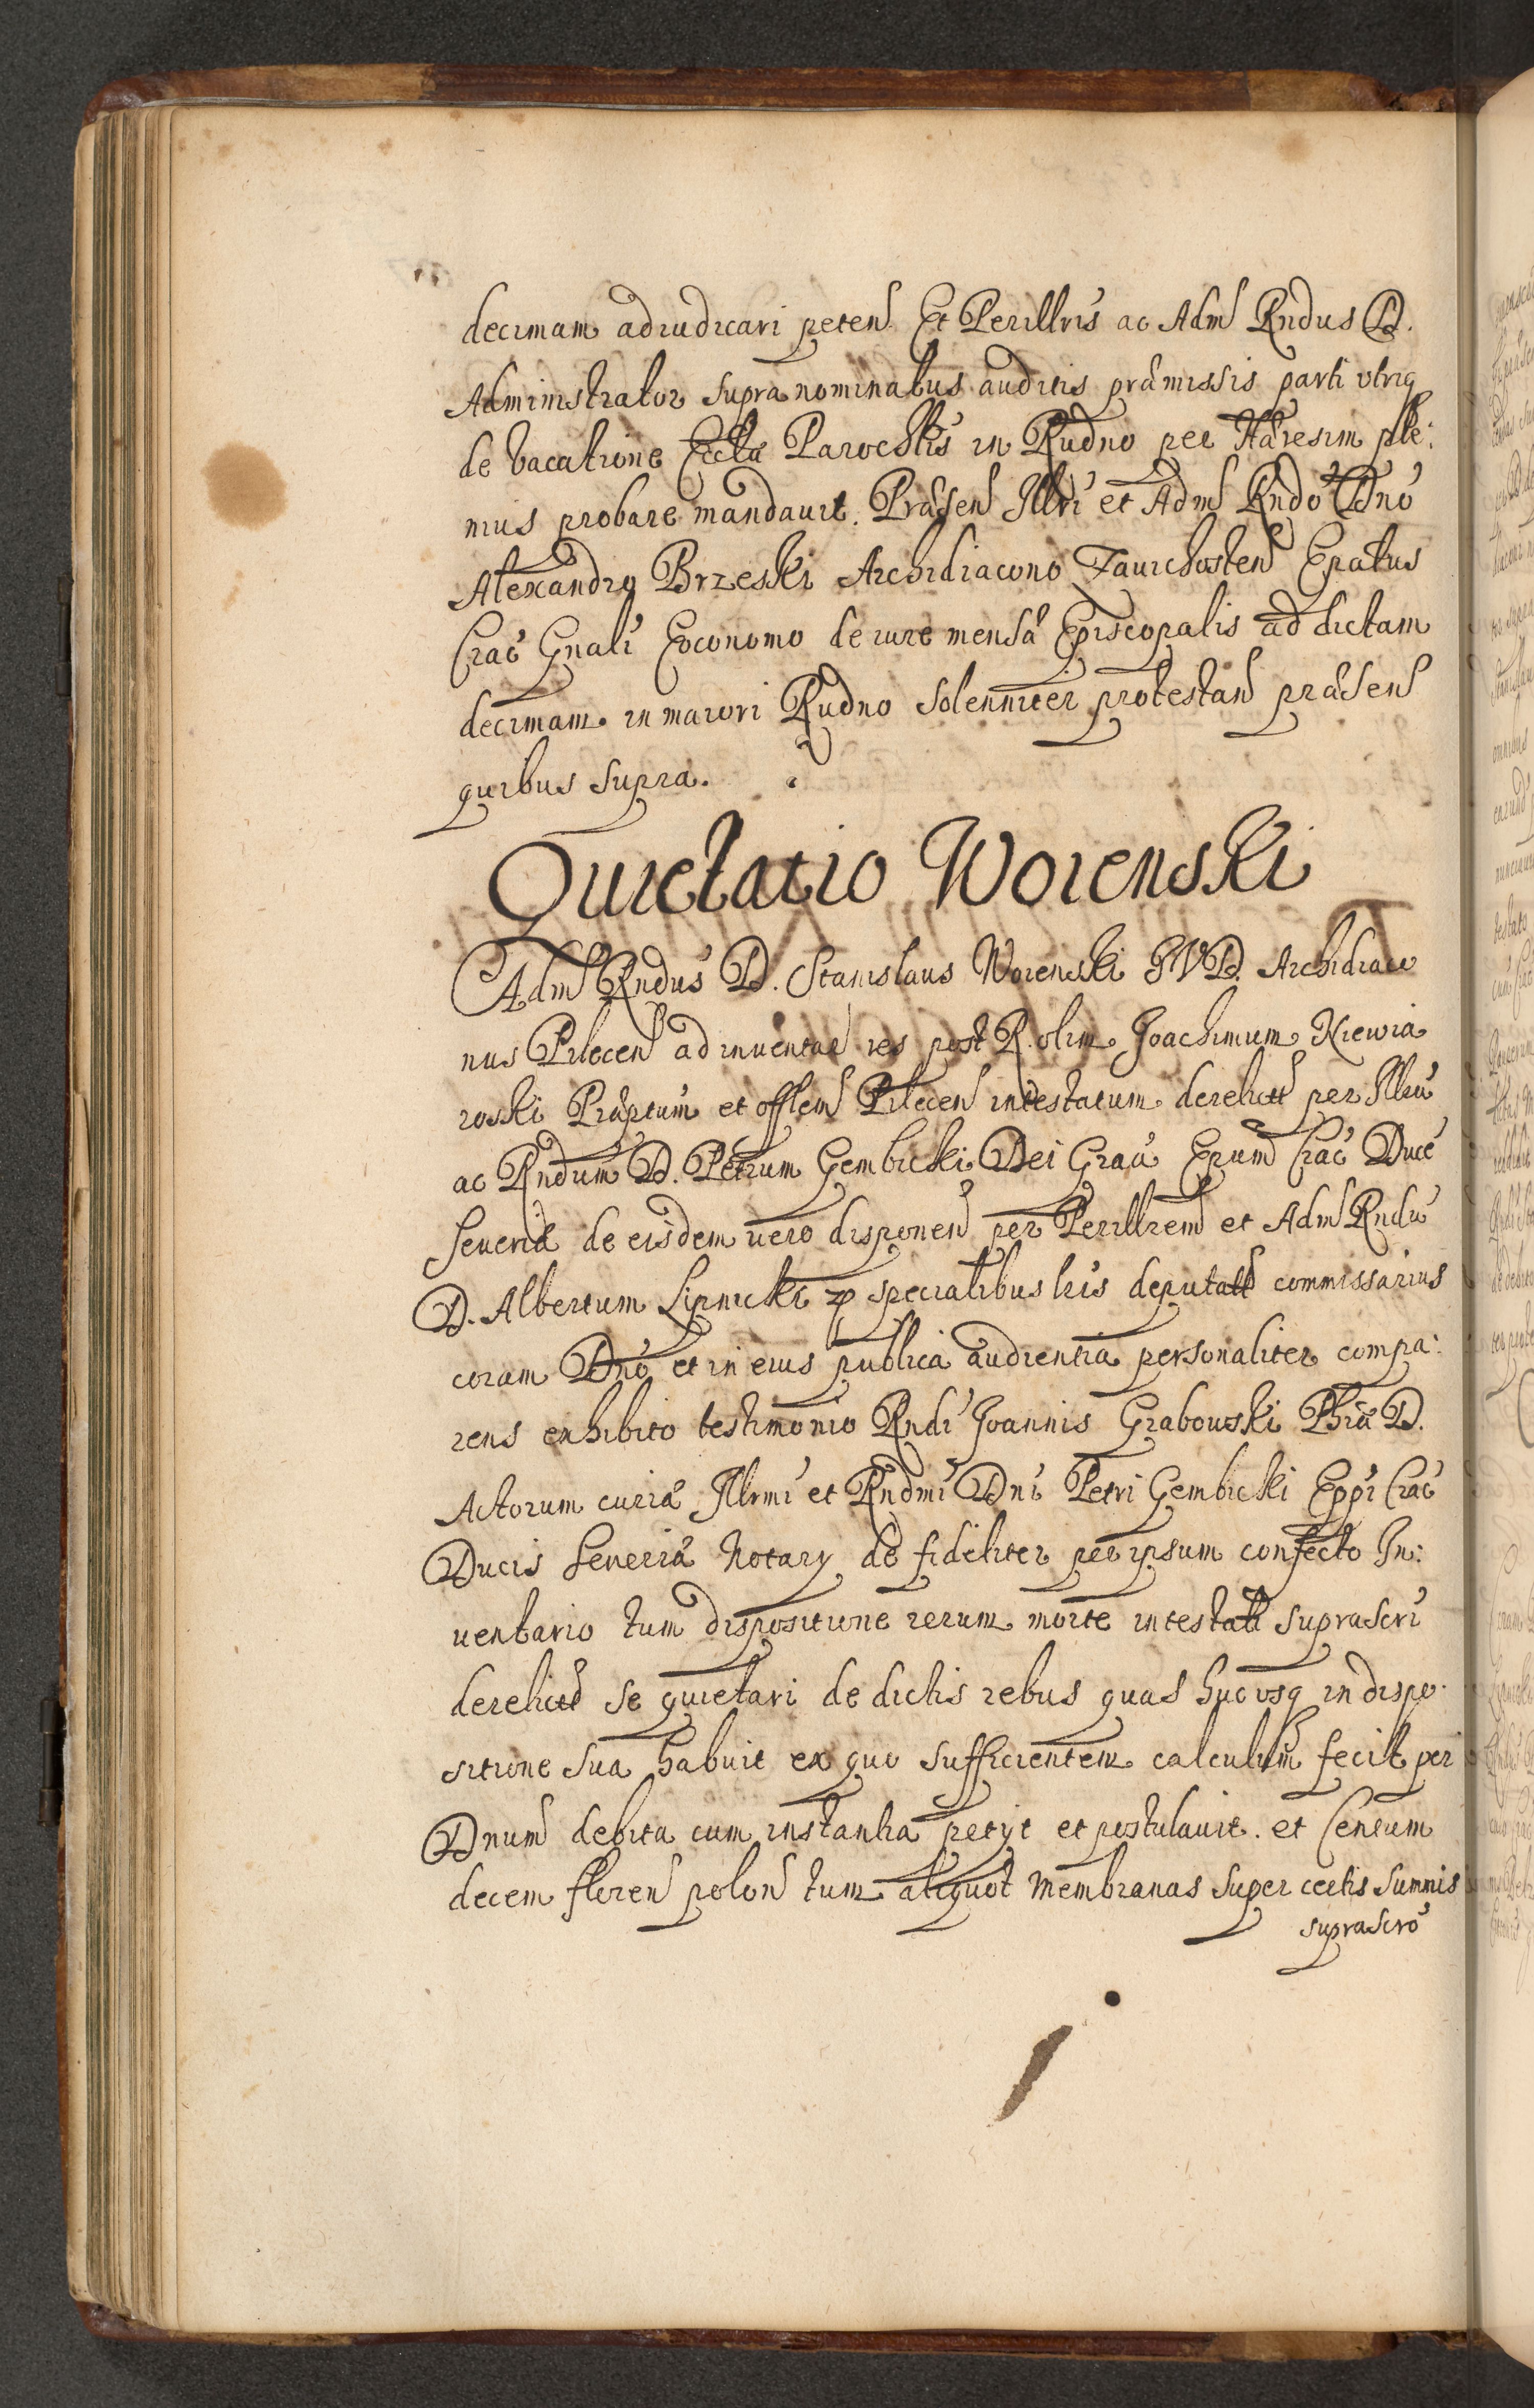 decimam adiudicari peten Et Perillris ac Adm Rndus D.
Administrator supra nominatus auditis præmissis parti utriq
de vacatione Eccłæ Parochłis in Rudno per Hæresim ple:
nius probare mandauit. Præsen Illri et Adm Rndo Dno
Alexandro Brzeski Archidiacono Zauichosten Epatus
Crac Gnali Eoconomo de iure mensæ Episcopalis ad dictam
decimam in maiori Rudno solenniter protestan præsen
quibus supra.
Quietatio Worenski
Adm Rndus D. Stanislaus Worenski IVD. Archidiaco
nus Pilecen ad inuentas res post R. olim Joachimum Kiewia
roski Præptum et offlem Pilecen intestatum derelict per Illru
ac Rndum D. Petrum Gembicki Dei Graa Epum Crac Duce
Seueriæ de eisdem uero disponen per Perillrem et Adm Rndu
D. Albertum Lipnicki specialibus lris deputatt commissarius
coram Dno et in eius publica audientia personaliter compa:
rens exhibito testimonio Rndi Joannis Grabowski Phiæ D.
Actorum curiæ Illrmi et Rndmi Dni Petri Gembicki Eppi Crac
Ducis Seueriæ Notary de fideliter per ipsum confecto In:
uentario tum dispositione rerum morte intestati suprascri
derelict se quietari de dictis rebus quas hucusq in dispo:
sitione sua habuit ex quo sufficientem calculum fecit per
Dnum debita cum instantia petijt et postulauit. et Centum
decem floren polon tum aliquot Membranas super certis summis
suprascro